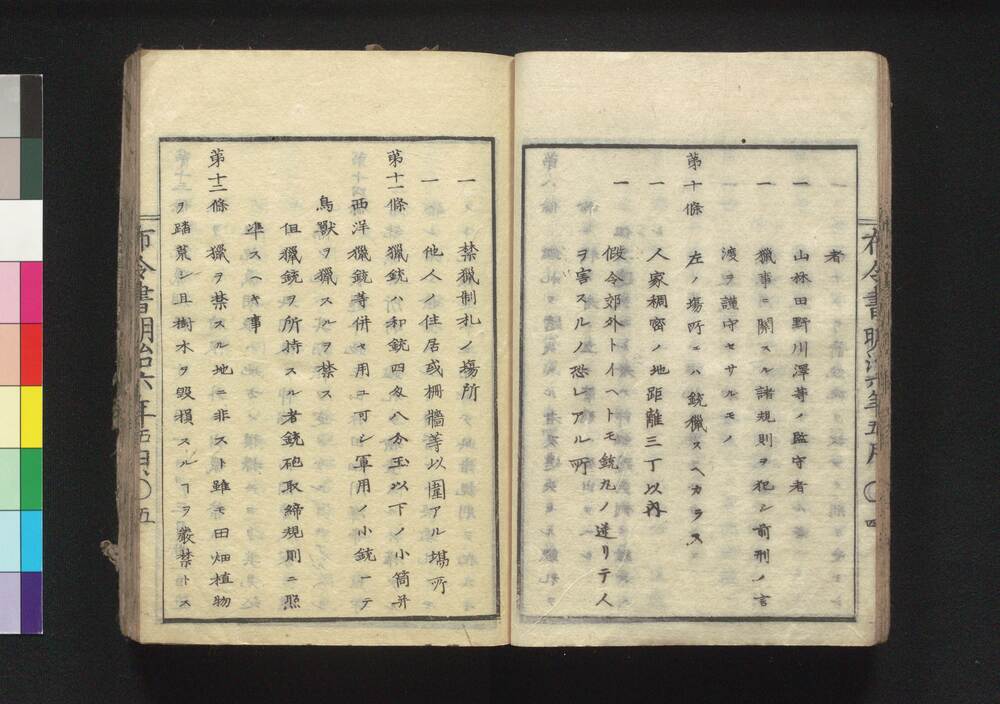 者
一 山林田野川澤等ノ監守者
一 獵事ニ關スル諸規則ヲ犯シ前刑ノ言
渡ヲ謹守セサルモノ
第十條 左ノ塲所ニハ銃獵スヘカラス
一 人家稠密ノ地距離三丁以內
一 假令郊外トイヘトモ銃丸ノ達リテ人
ヲ害スルノ恐レアル所
布令書明治六年五月 〇 四
一 禁獵制札ノ塲所
一 他人ノ住居或柵牆等以圍アル塲所
第十一條 獵銃ハ和銃四匁八分玉以下ノ小筒并
西洋獵銃等併セ用ユ可シ軍用ノ小銃ニテ
鳥獸ヲ獵スルヲ禁ス
但獵銃ヲ所持スル者銃砲取締規則ニ照
準スヘキ事
第十二條 獵ヲ禁スル地ニ非スト雖モ田畑植物
ヲ踏荒シ且樹木ヲ毀損スルヿヲ嚴禁トス
布令書明治六年五月 〇 五